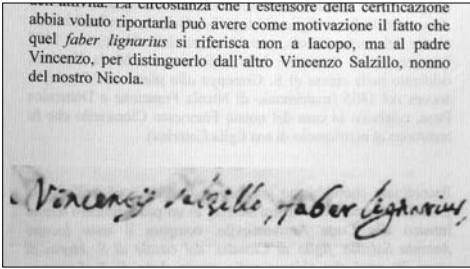 dell'attività. La circostanza che l'estensore della certificazione
abbia voluto riportarla può avere come motivazione il fatto che
quel faber lignarius si riferisca non a Iacopo, ma al padre
Vincenzo, per distinguerlo dall'altro Vincenzo Salzillo, nonno
del nostro Nicola.
Vincenzij Salzillo, faber lignarius,